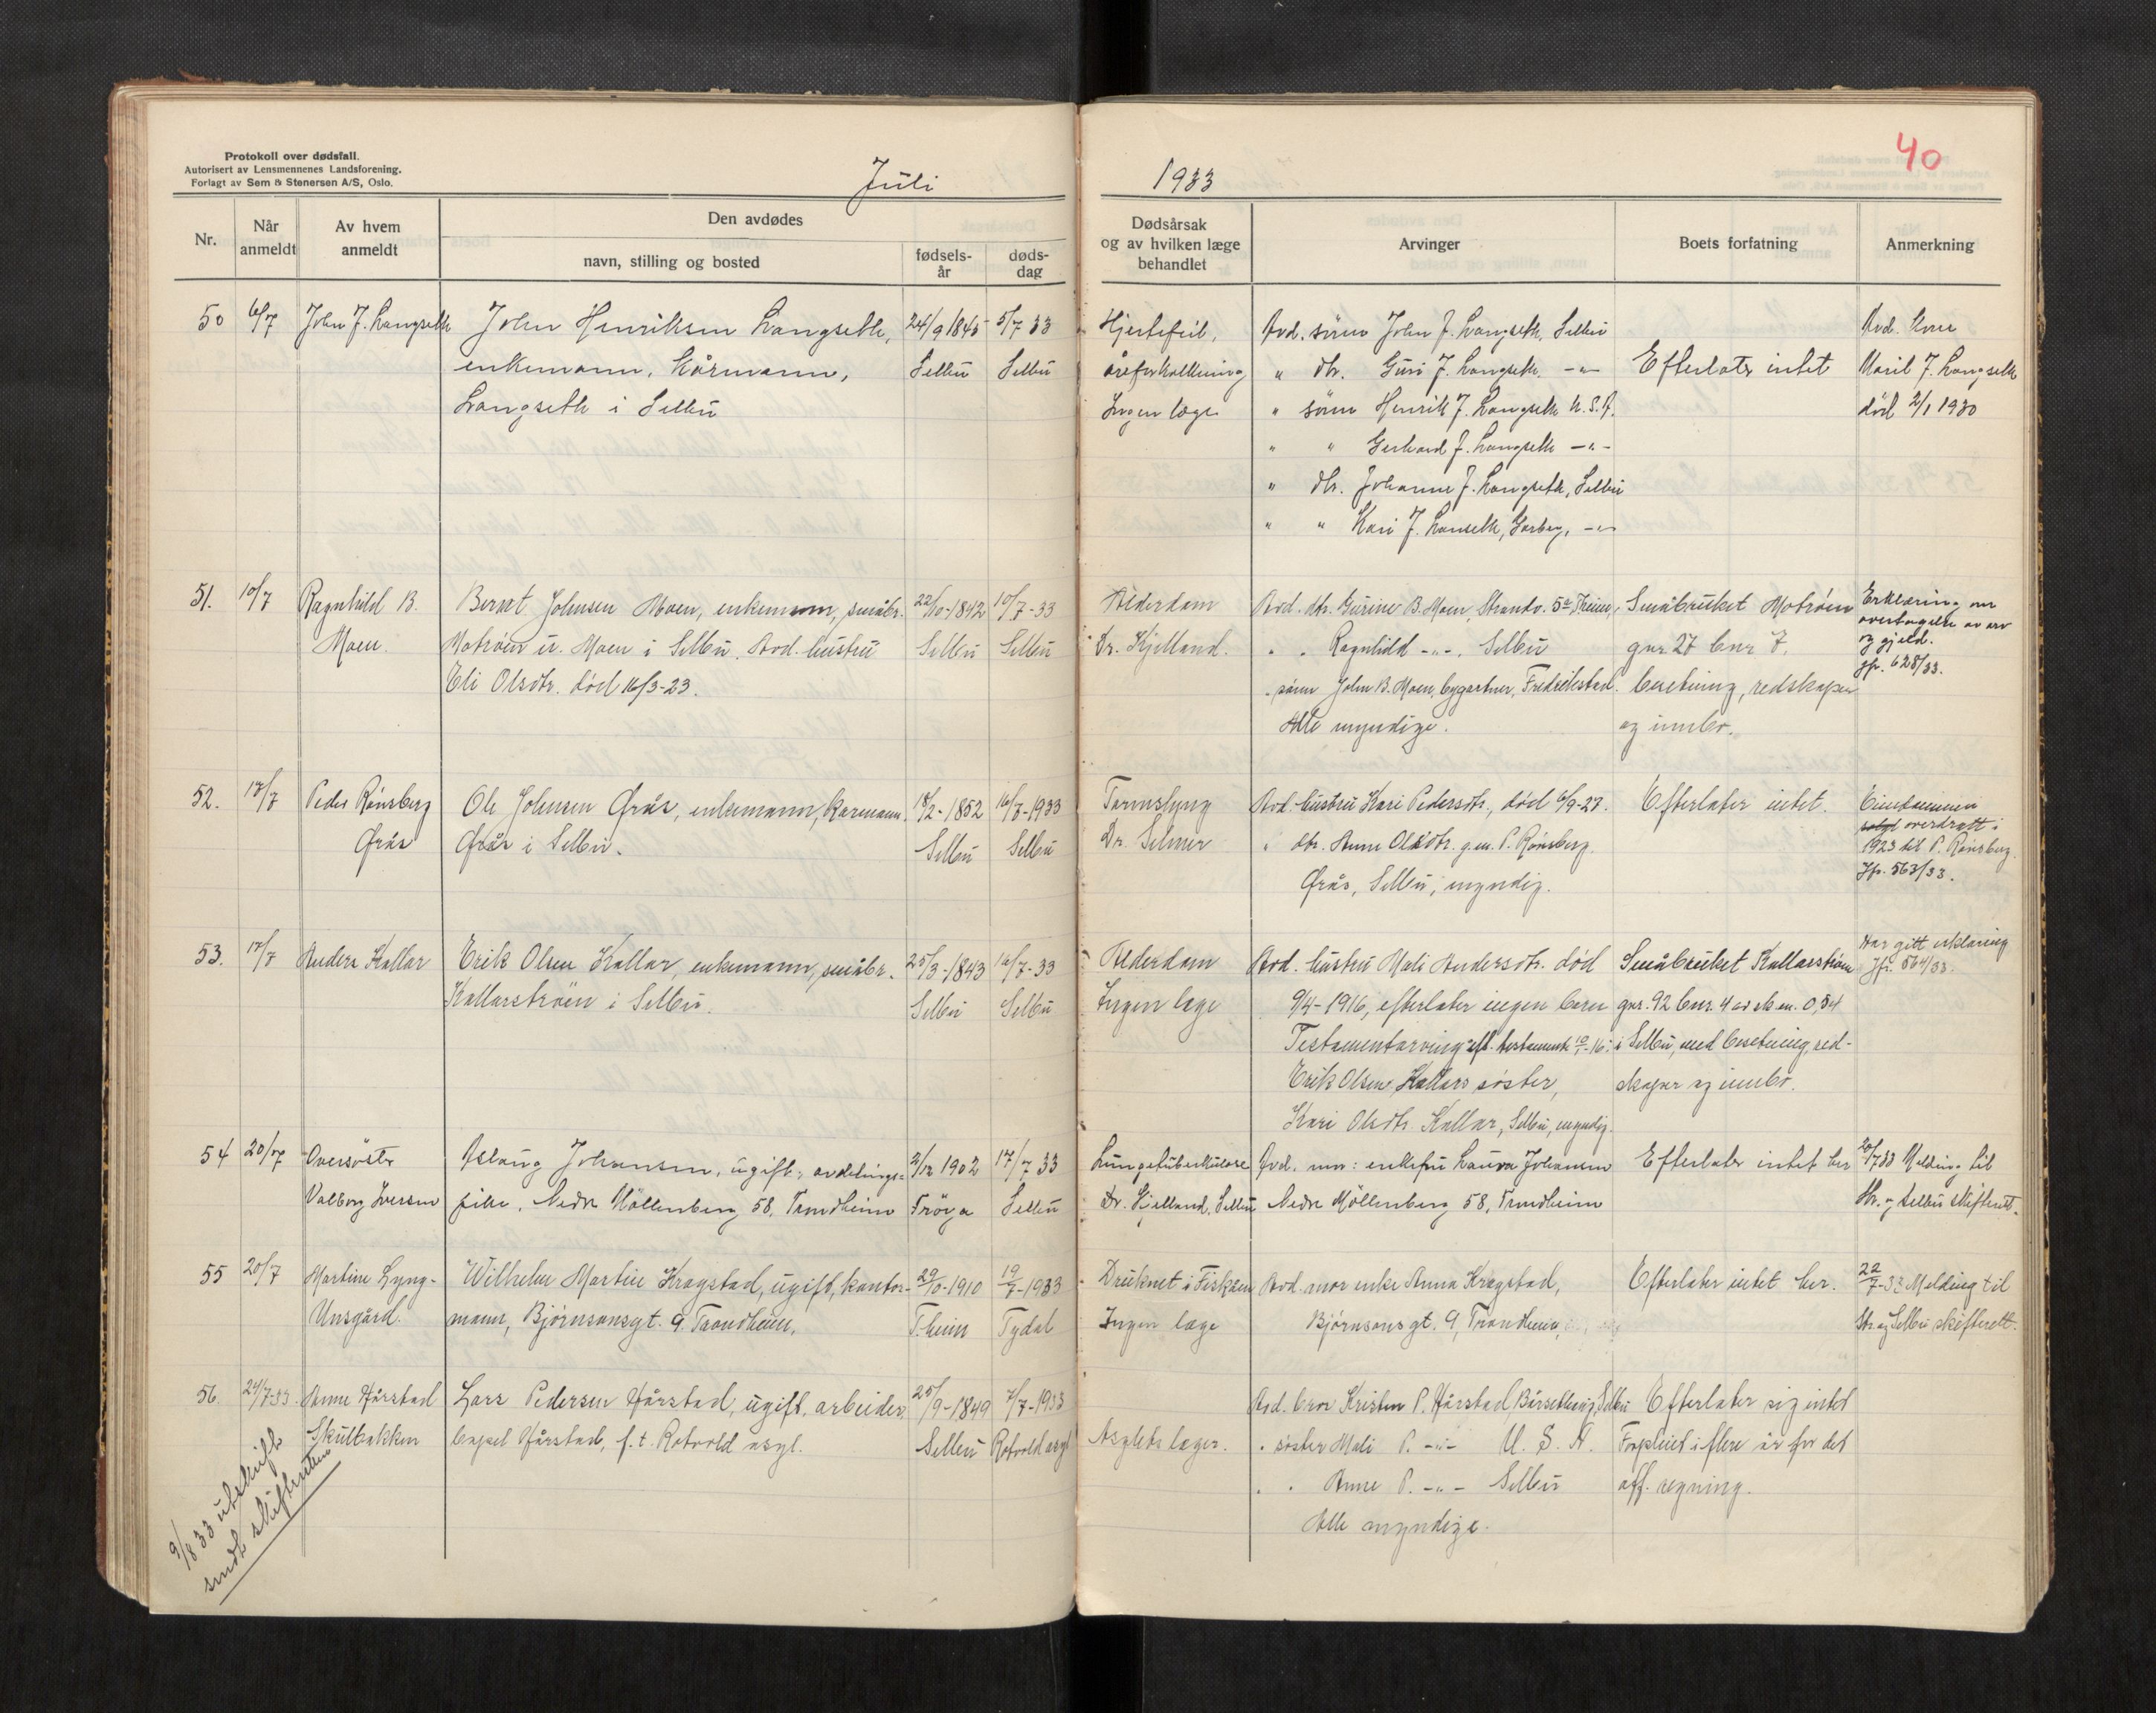 Protokoll over dødsfall.
Autorisert av Lensmennenes Landsforening.
Forlagt av Sem & Stenersen A/S, Oslo.
Juli
1933
40
Nr.
Når anmeldt
Av hvem anmeldt
Den avdødes
navn, stilling og bosted
fødsels-år
døds-dag
Dødsårsak og av hvilken læge behandlet
Arvinger
Boets forfatning
Anmerkning
50
6/7
John J. Langseth
John Henriksen Langseth,
enkemann, kårmann,
Langseth i Selbu
24/9 1845
Selbu
5/7 33
Selbu
Hjertefeil,
åreforkalkning
Ingen læge
Avd. sönn John J. Langseth, Selbu
" dtr. Guri J. Langseth -"-
" sönn Henrik J. Langseth U.S.A.
" " Gerhard J. Langseth -"-
" dtr. Johanna J. Langseth, Selbu
" " Kari J. Lanseth, Garberg, -"-
Efterlater intet
Avd. kone
Marit J. Langseth
död 2/1 1930
51.
10/7
Ragnhild B.
Moen.
Bernt Johnsen Moen, enkemann, småbr.
Motröen u. Moen i Selbu. Avd. hustru
Eli Olsdtr. död 16/3-23.
22/10-1842
Selbu
10/7-33
Selbu
Alderdom
Dr. Kjelland.
Avd. dtr. Gurine B. Moen, Strandv. 5a Theim,
" " Ragnhild -"-, Selbu
" sönn John B. Moen, bygartner, Fredrikstad.
Alle myndige.
Småbruket Motröen
gnr 27 bnr 7.
besetning, redskaper
og innbo.
Erklæring om
overtagelse av arv
og gjeld.
Jfr. 628/33.
52.
17/7
Peder Rönsberg
Öräs
Ole Johnsen Öräs, enkemann, karmann
Öräs i Selbu.
18/2-1852
Selbu
16/7-1933
Selbu
Tarmslyng
Dr. Selmer
Avd. hustru Kari Pedersdtr., död 6/9-27.
" dtr. Anne Olsdtr. g.m. P. Rönsberg.
Öräs, Selbu, myndig.
Efterlater intet.
Eiendommen
solgt overdratt i
1923 til P. Rönsberg.
Jfr. 563/33.
53.
17/7
Anders Kallar
Erik Olsen Kallar, enkemann, småbr.
Kallarströen i Selbu.
25/3-1843
Selbu
16/7-33
Selbu
Alderdom
Ingen læge
Avd. hustru Mali Andersdtr. död
9/4-1916, efterlater ingen barn
Testamentarving efl. testamente
Erik Olsen Kallars söster,
Kari Olsdtr. Kallar, Selbu, myndig.
Småbruket Kallarströen
gnr. 92 bnr. 4 av sk.m. 0,54
i Selbu, med besetning, red-
skaper og innbo.
Har gitt erklæring
Jfr. 564/33.
54
20/7
Oversöster
Valborg Iversen
Aslaug Johansen, ugift, avdelings-
pike, Nedre Möllenberg 58, Trondheim
2/12 1902
Fröya
17/7 33
Selbu
Lungetuberkulose
Dr. Kjelland, Selbu
Avd. mor: enkefru Laura Johansen
Nedre Möllenberg 58, Trondheim
Efterlater intet her
20/7 33 Melding til
Str. og Selbu skifterett.
55
20/7
Martin Lyng-
Unsgård.
Wilhelm Martin Kragstad, ugift, kontor-
mann, Bjørnsonsgt. 9. Trondheim.
29/10-1910
T.heim
19/7-1933
Tydal
Druknet i Fiskåen
Ingen læge
Avd. mor enke Anna Kragstad,
Bjørnsonsgt. 9, Trondheim,
Efterlater intet her.
22/7-33 Melding til
Str og Selbu skifterett.
56
24/7-33.
Anne Hårstad
Skulbakken
Lars Pedersen Hårstad, ugift, arbeider
bopel Hårstad, f.t. Rotvold asyl.
25/9-1849
Selbu
7/7-1933
Rotvold asyl
Asylets læger.
Avd. bror Kristen P. Hårstad, Börsethaug, Selbu
" söster Mali P. -"- U. S. A.
" " Anne P. -"- Selbu
Alle myndige.
Efterlater sig intet
Forpleiet i flere år for det
off. regning.
9/8 33 utskrift
sendt skifteretten